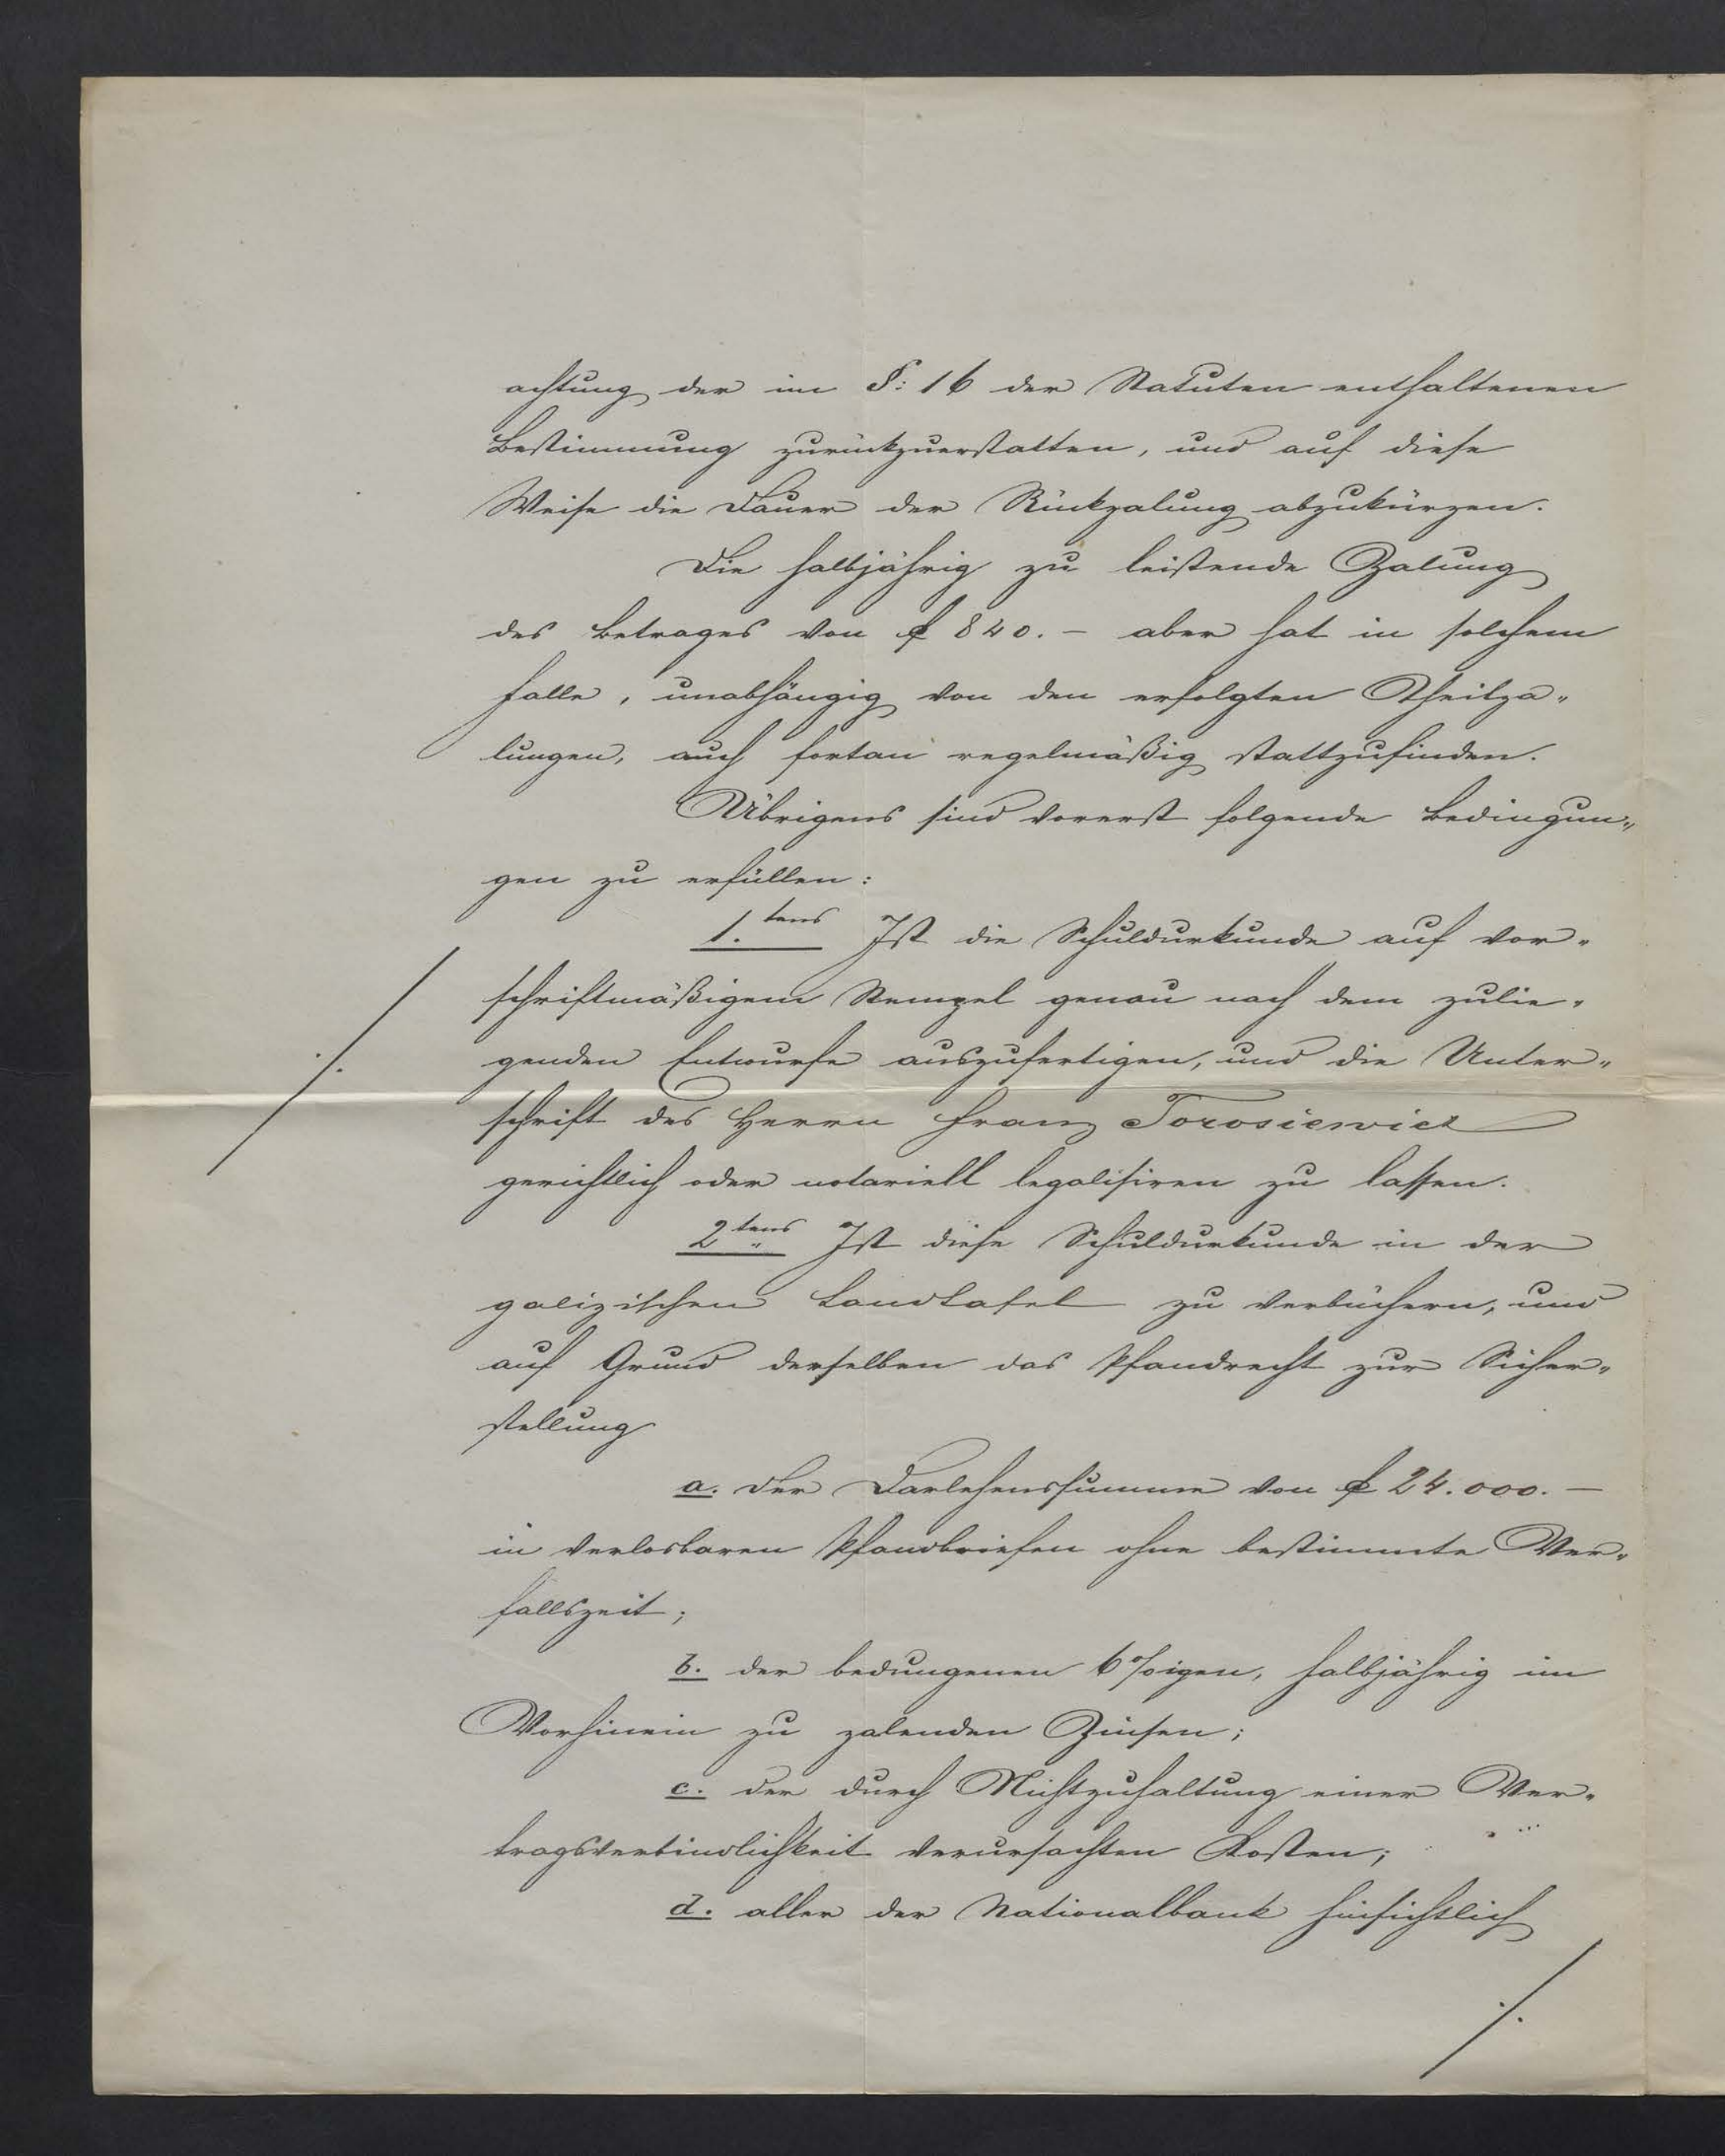 achtung der im §: 16 der Statuten enthaltenen
Bestimmung zurückzuerstatten, und auf diese
Weise die Dauer der Rückzalung abzukürzen.
Die halbjährig zu leistende Zalung
des Betrages von f 840.– aber hat in solchem
Falle, unabhängig von den erfolgten Theilza„
lungen, auch fortan regelmäßig stattzufinden.
Übrigens sind vorerst folgende Bedingun„
gen zu erfüllen:
1.tens Ist die Schuldurkunde auf vor„
schriftmäßigem Stempel genau nach dem zulie„
genden Entwurfe auszufertigen, und die Unter„
./.
schrift des Herrn Franz Torosiewicz
gerichtlich oder notariell legalisiren zu lassen.
2tens Ist diese Schuldurkunde in der
galizischen Landtafel zu verbüchern, und
auf Grund derselben das Pfandrecht zur Sicher„
stellung
a. der Darlehenssumme von f 24.000.–
in verlosbaren Pfandbriefen ohne bestimmte Ver„
fallszeit;
b. der bedungenen 6%igen, halbjährig im
Vorhinein zu zalenden Zinsen;
c. der durch Nichtzuhaltung einer Ver„
tragsverbindlichkeit verursachten Kosten;
d. aller der Nationalbank hinsichtlich
./.